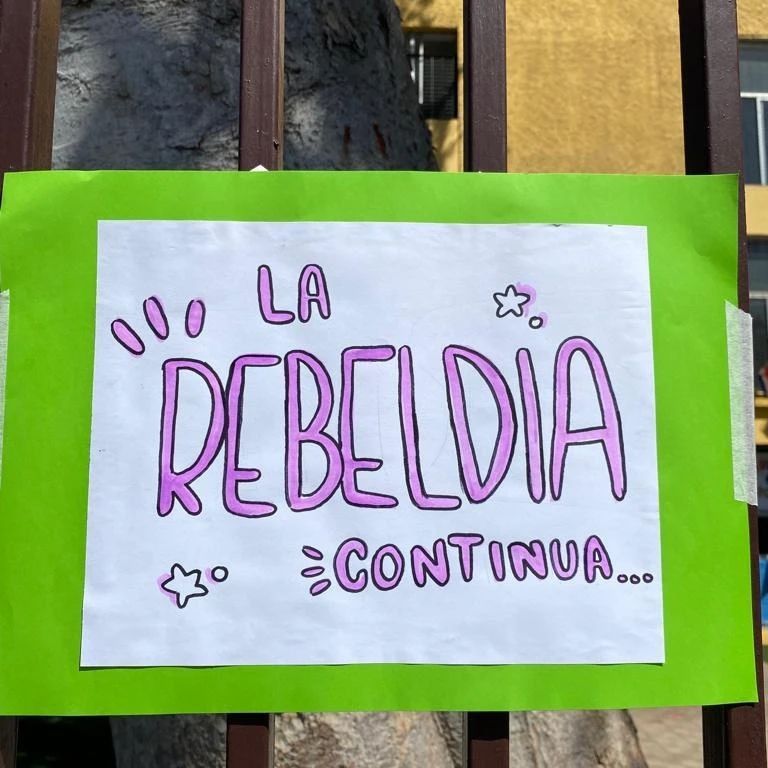 LA
REBELDIA
CONTINUA...